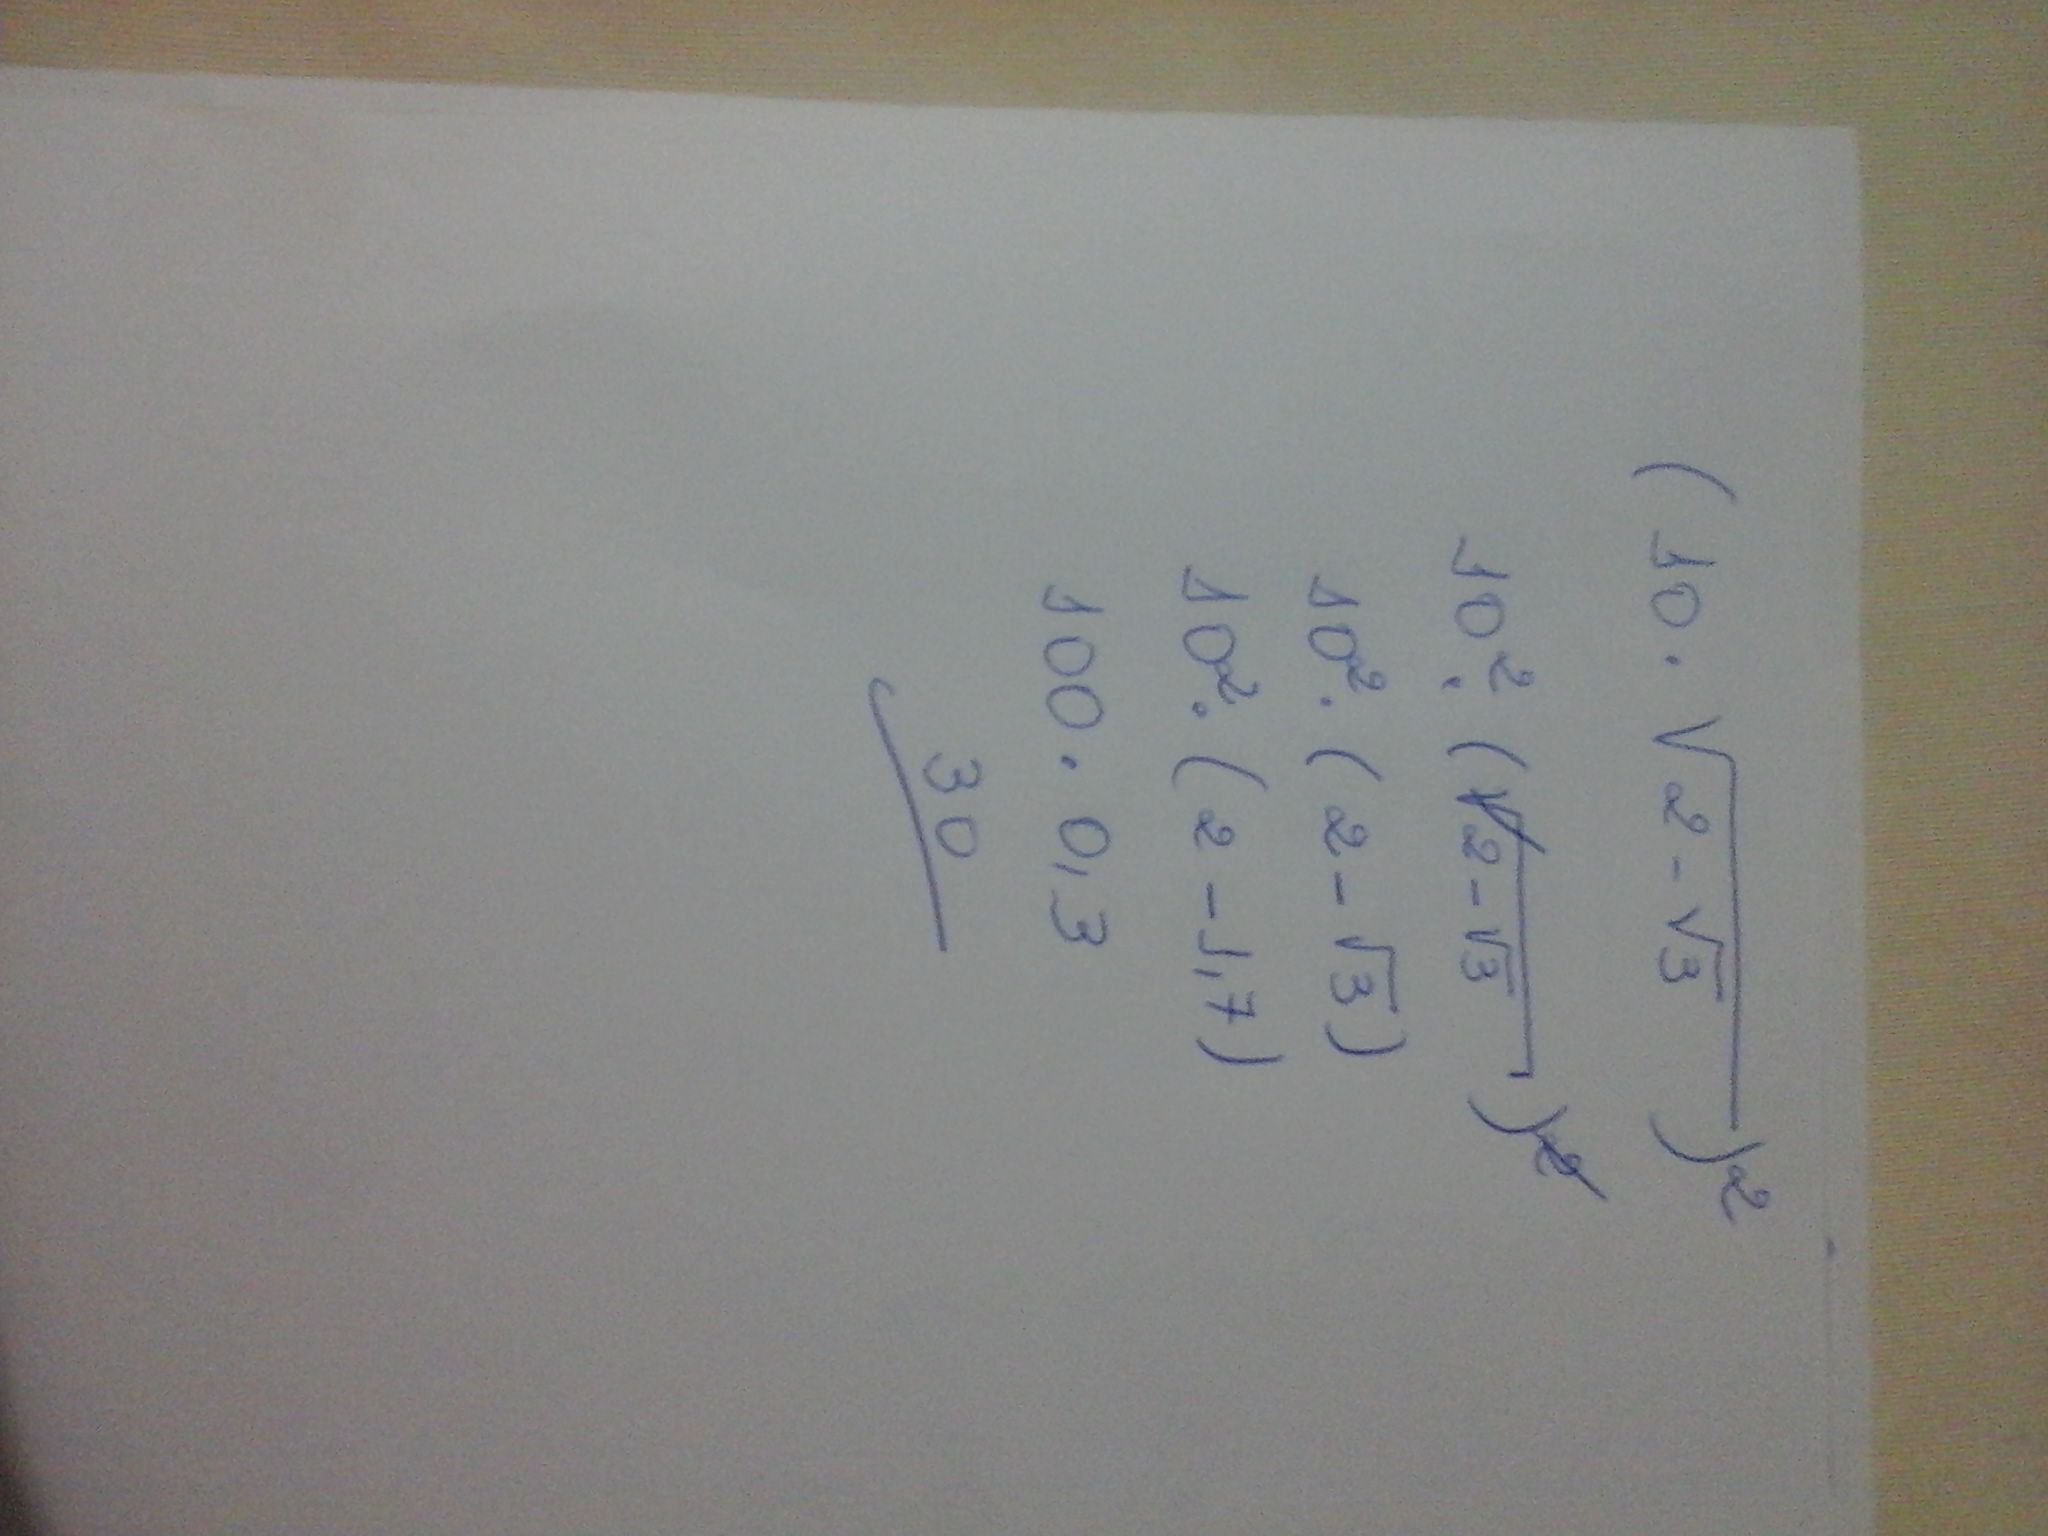 (10·√(2-√3))²
10²·(√(2-√3))²
10²·(2-√3)
10²·(2-1,7)
100·0,3
30